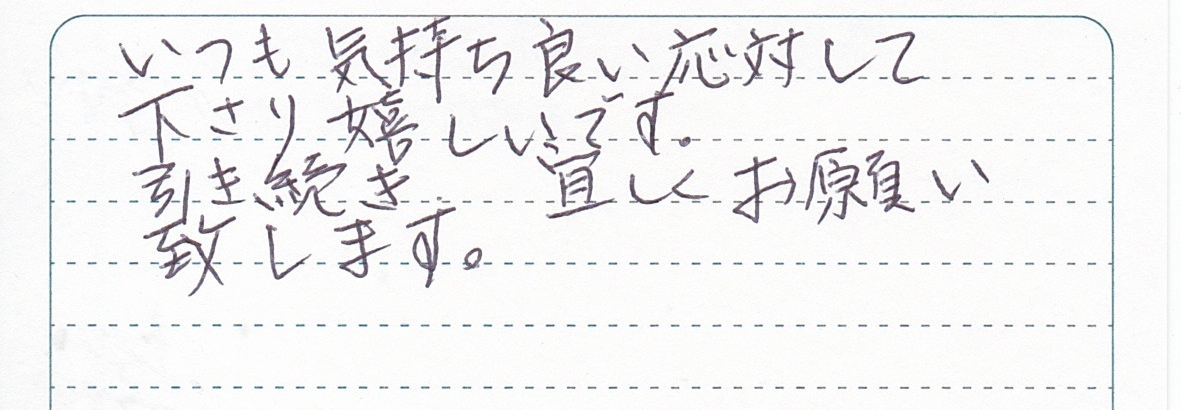 いつも気持ち良い応対して
下さり嬉しいです。
引き続き宜しくお願い
致します。